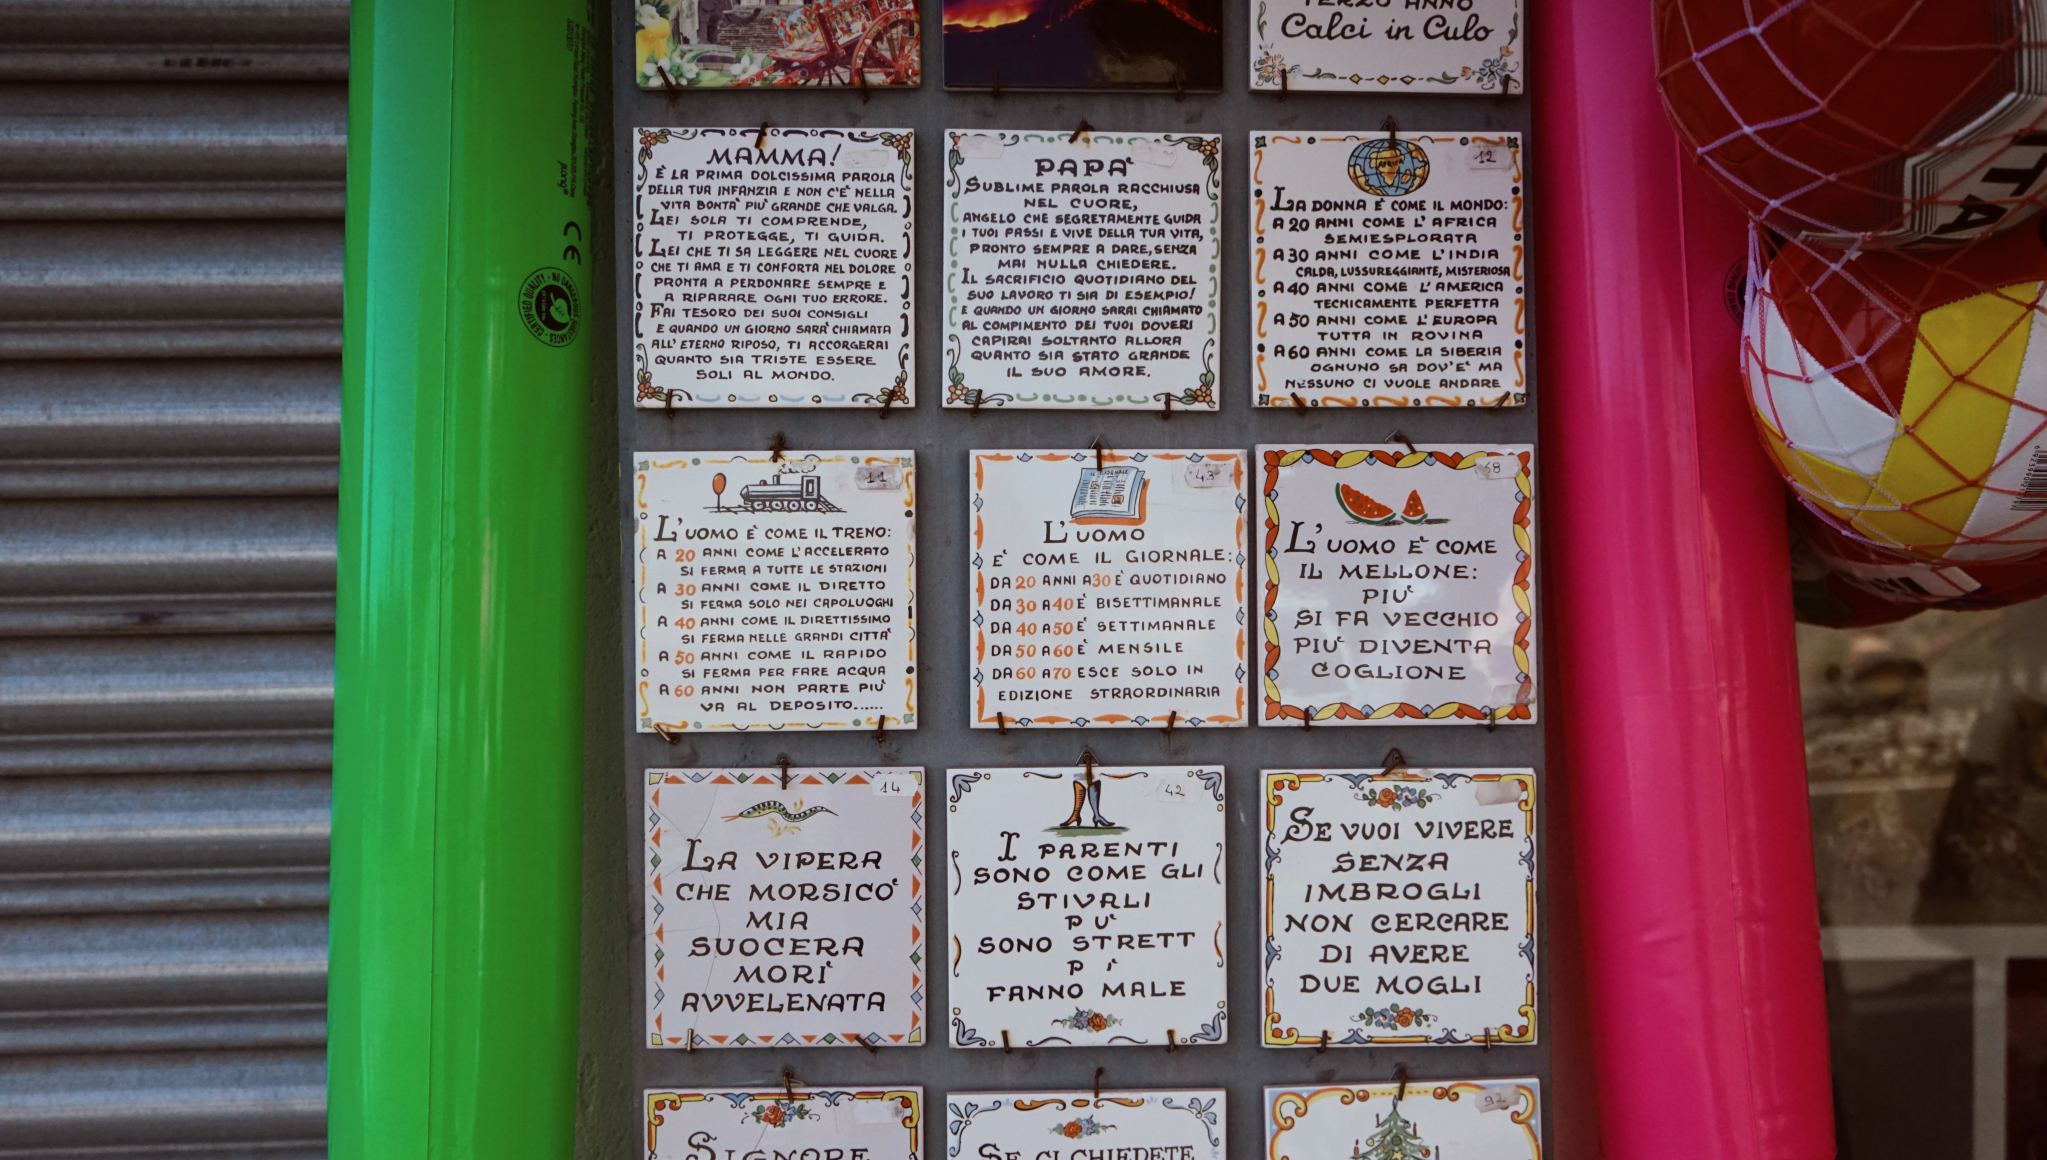 TERZO ANNO
Calci in Culo
MAMMA!
È LA PRIMA DOLCISSIMA PAROLA
DELLA TUA INFANZIA E NON C'È NELLA
VITA BONTA' PIU' GRANDE CHE VALGA.
LEI SOLA TI COMPRENDE,
TI PROTEGGE, TI GUIDA.
LEI CHE TI SA LEGGERE NEL CUORE
CHE TI AMA E TI CONFORTA NEL DOLORE
PRONTA A PERDONARE SEMPRE E
A RIPARARE OGNI TUO ERRORE.
FAI TESORO DEI SUOI CONSIGLI
E QUANDO UN GIORNO SARA' CHIAMATA
ALL' ETERNO RIPOSO, TI ACCORGERAI
QUANTO SIA TRISTE ESSERE
SOLI AL MONDO.
PAPA'
SUBLIME PAROLA RACCHIUSA
NEL CUORE,
ANGELO CHE SEGRETAMENTE GUIDA
I TUOI PASSI E VIVE DELLA TUA VITA,
PRONTO SEMPRE A DARE, SENZA
MAI NULLA CHIEDERE.
IL SACRIFICIO QUOTIDIANO DEL
SUO LAVORO TI SIA DI ESEMPIO!
E QUANDO UN GIORNO SARAI CHIAMATO
AL COMPIMENTO DEI TUOI DOVERI
CAPIRAI SOLTANTO ALLORA
QUANTO SIA STATO GRANDE
IL SUO AMORE.
AFRICA
12
LA DONNA È COME IL MONDO:
A 20 ANNI COME L' AFRICA
SEMIESPLORATA
A 30 ANNI COME L'INDIA
CALDA, LUSSUREGGIANTE, MISTERIOSA
A 40 ANNI COME L'AMERICA
TECNICAMENTE PERFETTA
A 50 ANNI COME L'EUROPA
TUTTA IN ROVINA
A 60 ANNI COME LA SIBERIA
OGNUNO SA DOV'E' MA
NESSUNO CI VUOLE ANDARE
11
L'UOMO È COME IL TRENO:
A 20 ANNI COME L'ACCELERATO
SI FERMA A TUTTE LE STAZIONI
A 30 ANNI COME IL DIRETTO
SI FERMA SOLO NEI CAPOLUOGHI
A 40 ANNI COME IL DIRETTISSIMO
SI FERMA NELLE GRANDI CITTA'
A 50 ANNI COME IL RAPIDO
SI FERMA PER FARE ACQUA
A 60 ANNI NON PARTE PIU'
VA AL DEPOSITO......
43
L'UOMO
E' COME IL GIORNALE:
DA 20 ANNI A 30 È QUOTIDIANO
DA 30 A 40 È BISETTIMANALE
DA 40 A 50 È SETTIMANALE
DA 50 A 60 È MENSILE
DA 60 A 70 ESCE SOLO IN
EDIZIONE STRAORDINARIA
68
L'UOMO E' COME
IL MELLONE:
PIU'
SI FA VECCHIO
PIU' DIVENTA
COGLIONE
14
LA VIPERA
CHE MORSICO'
MIA
SUOCERA
MORI'
AVVELENATA
42
I PARENTI
SONO COME GLI
STIVALI
P U'
SONO STRETT
P I'
FANNO MALE
SE VUOI VIVERE
SENZA
IMBROGLI
NON CERCARE
DI AVERE
DUE MOGLI
SIGNORE
SE CI CHIEDETE
92
CE
CERTIFIED QUALITY
ITA